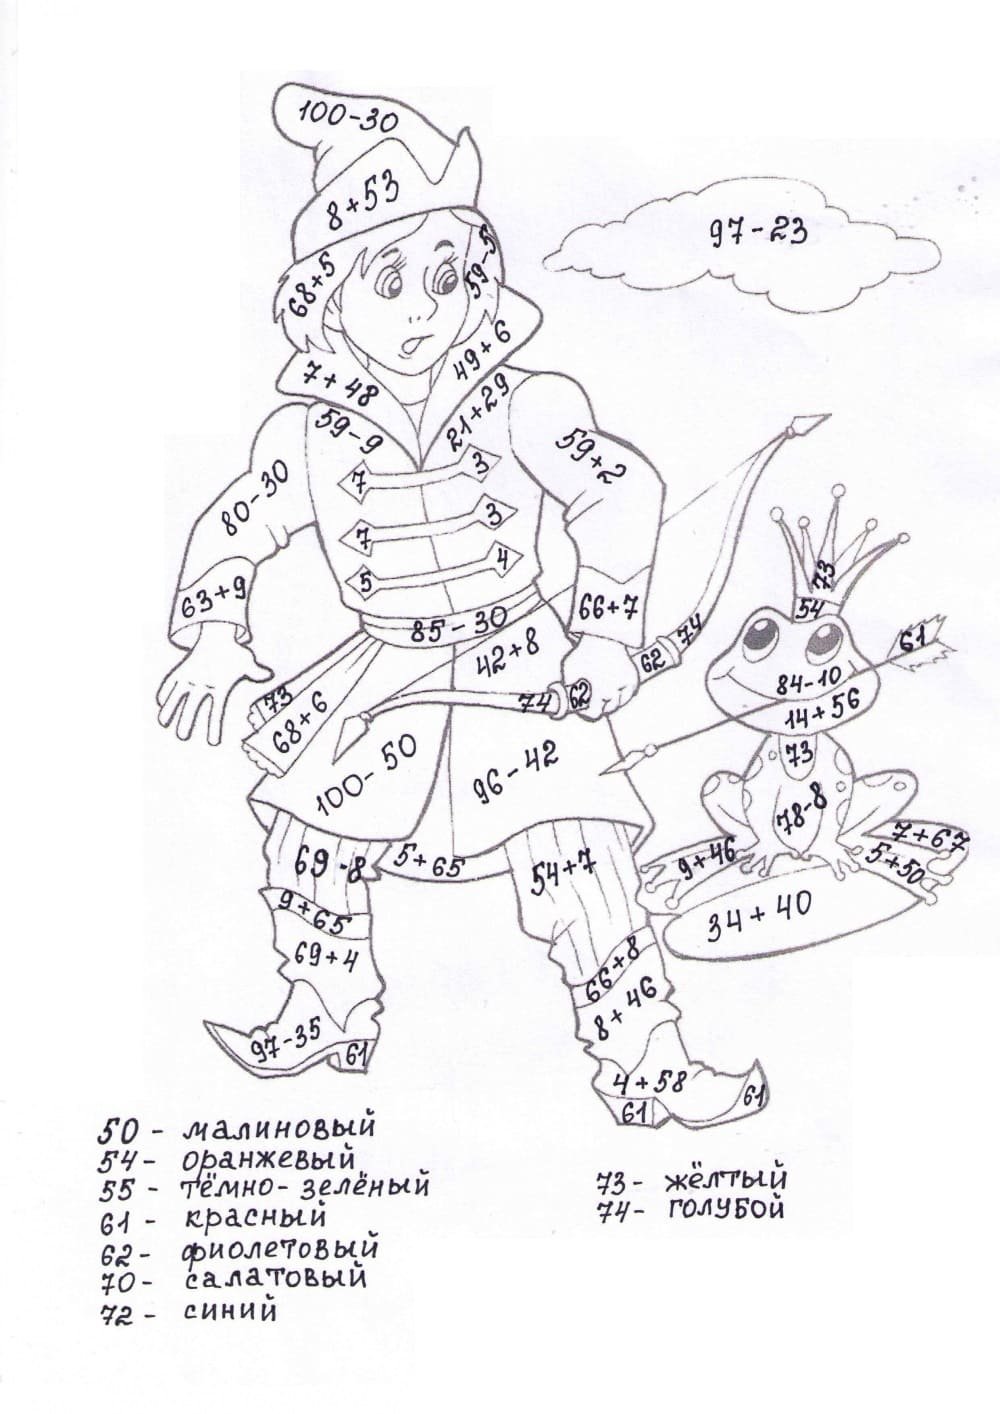 100-30
8+53
97-23
68+5
59-5
49+6
7+48
21+29
59-9
59+2
7
3
80-30
7
3
73
5
4
54
63+9
66+7
61
85-30
74
42+8
62
84-10
73
74
62
14+56
68+6
73
100-50
96-42
78-8
7+67
69-8
5+65
54+7
9+46
5+50
9+65
34+40
69+4
66+8
8+46
97-35
61
4+58
61
61
50 - малиновый
54 - оранжевый
55 - тёмно-зелёный
61 - красный
62 - фиолетовый
70 - салатовый
72 - синий
73 - жёлтый
74 - голубой